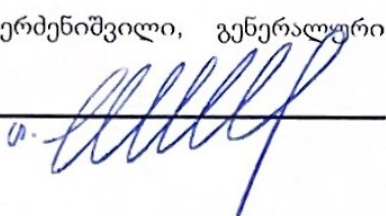 ერძენიშვილი, გენერალური